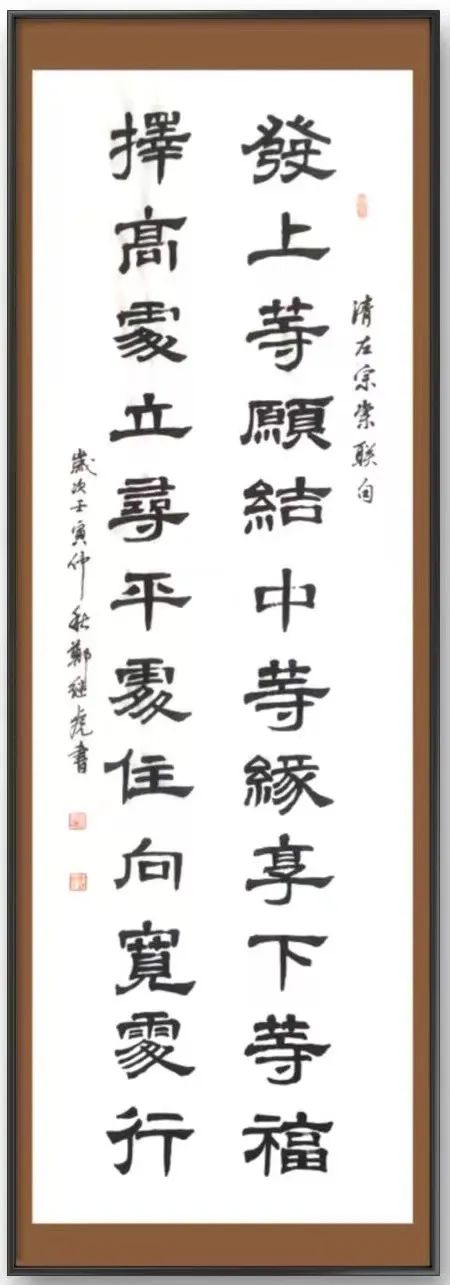 清左宗棠联句
發上等願結中等緣享下等福
擇高處立尋平處住向寬處行
歲次壬寅仲秋鄭继虎書